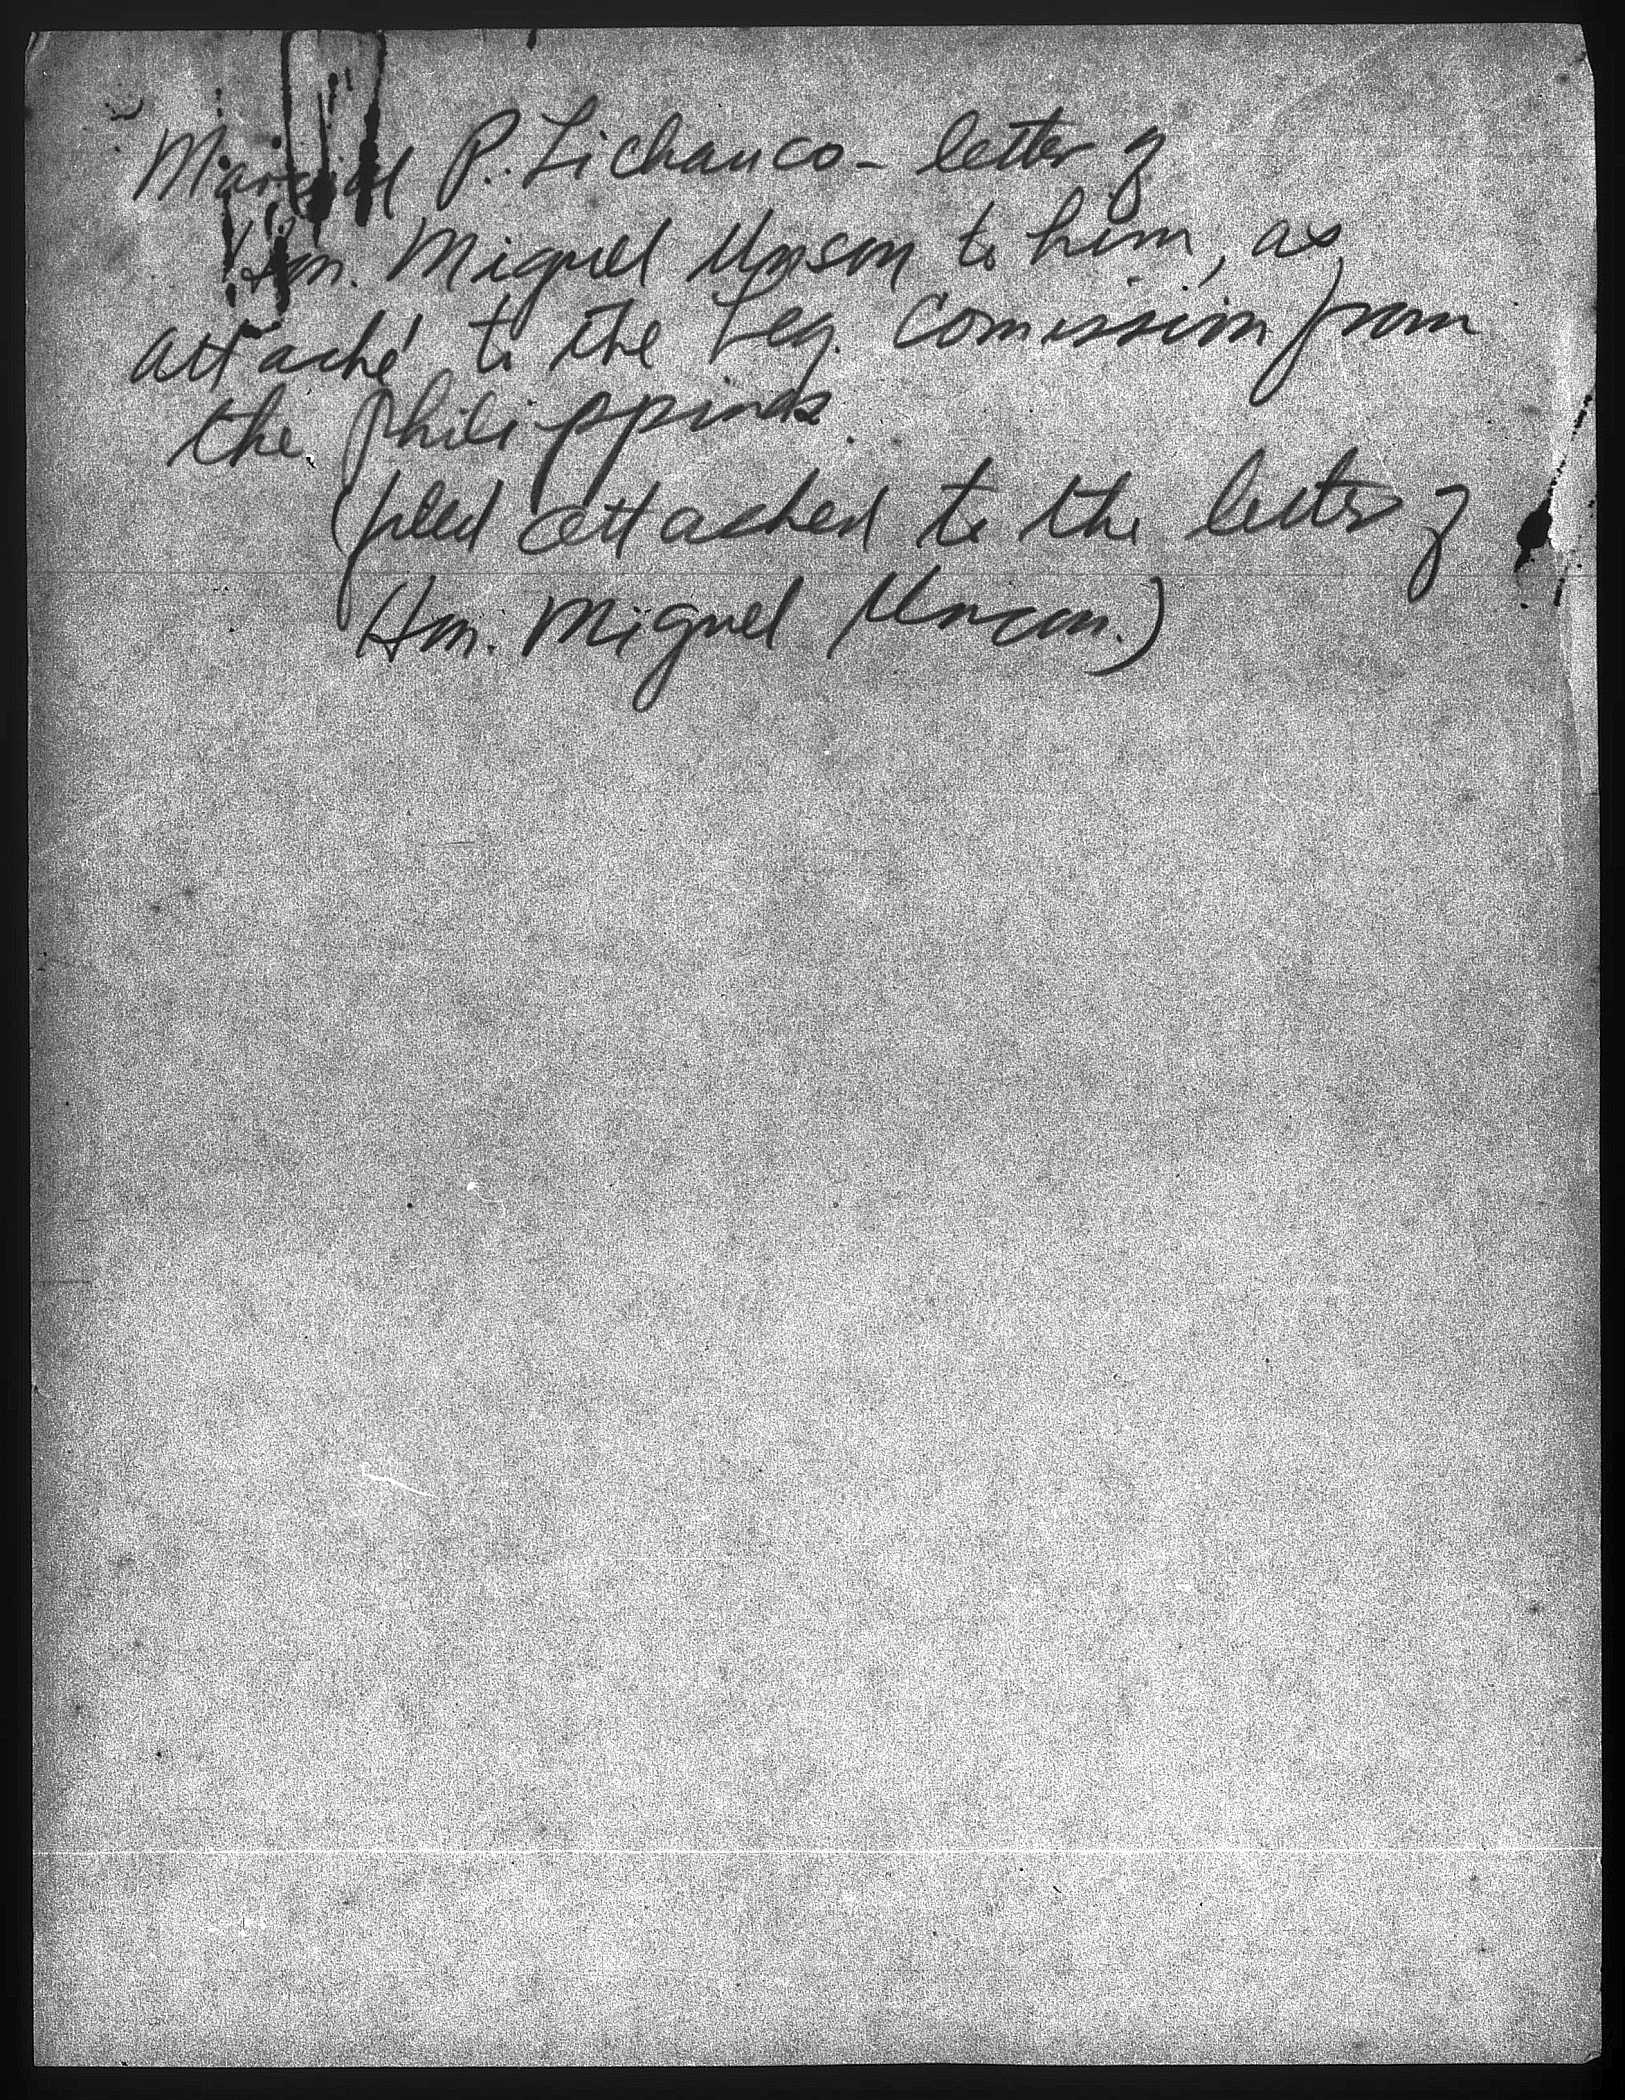 Marcial P. Lichauco - letter of
Hon. Miguel Unson to him, as
attaché to the Leg. Comission from
the Philippines.
(filed attached to the letter of
Hon. Miguel Unson.)